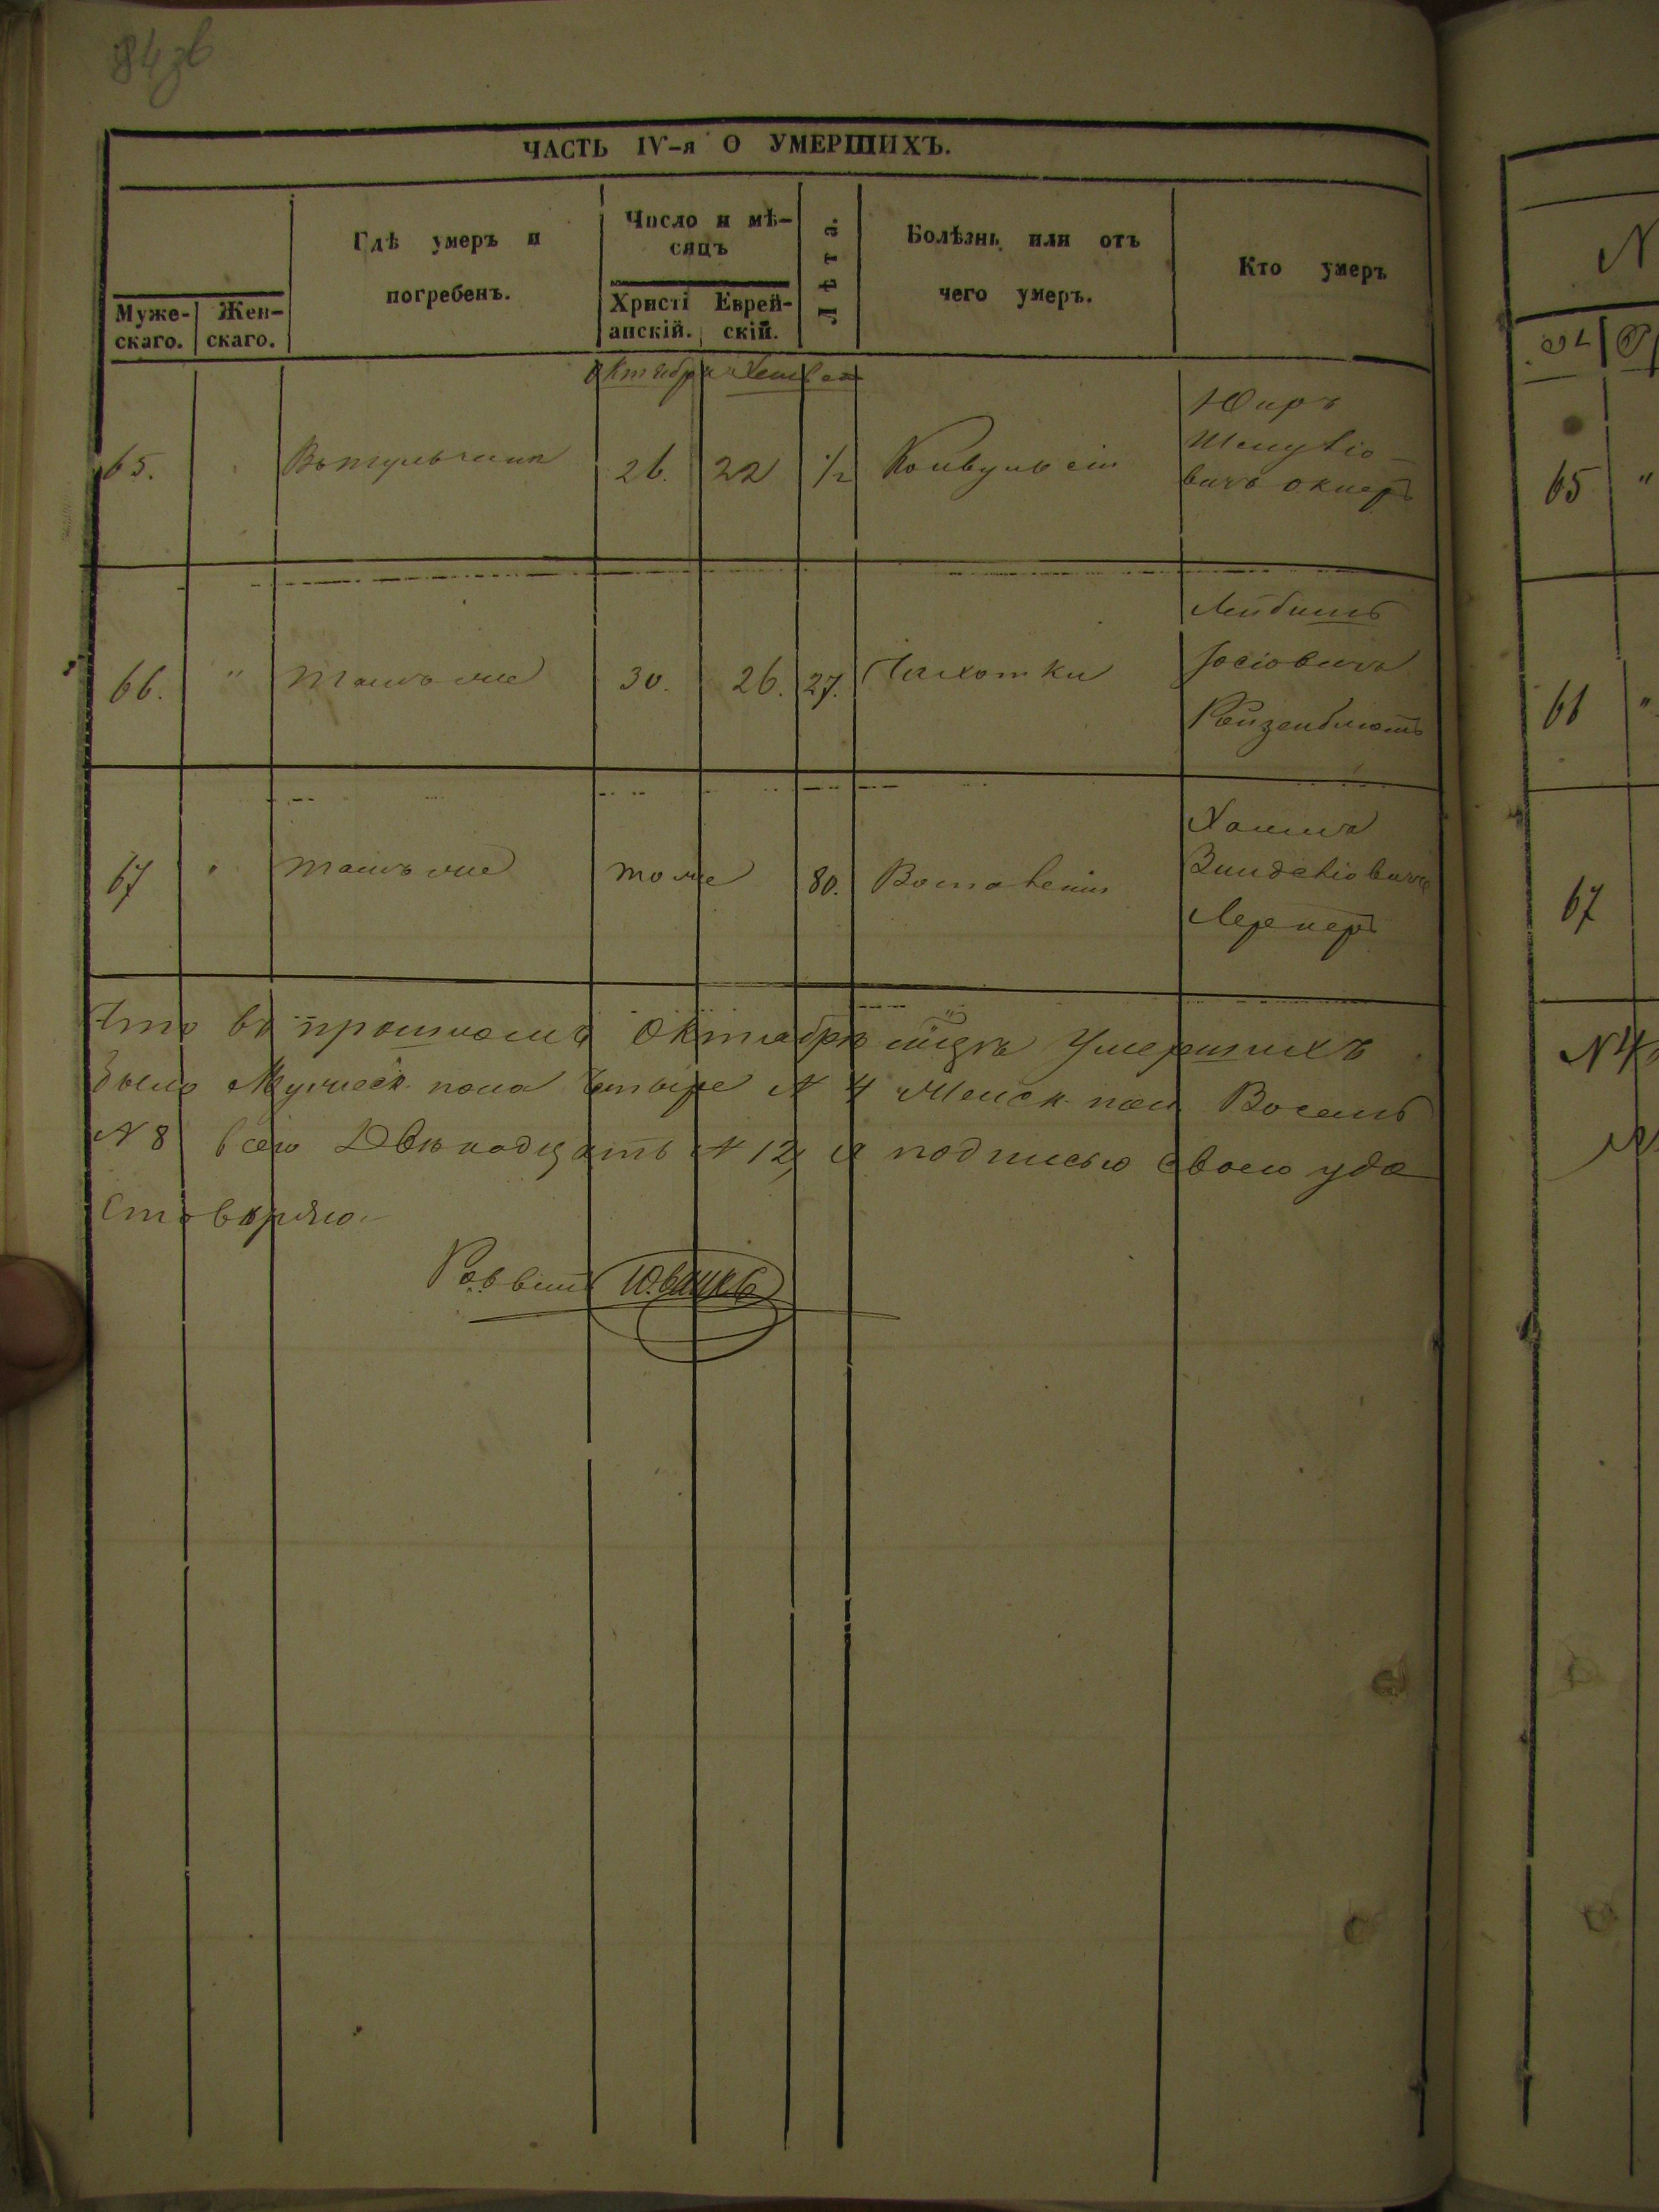 84 зв
ЧАСТЬ IV-я О УМЕРШИХЪ.
Муже-
скаго.
Жен-
скаго.
Гдѣ умеръ и
погребенъ.
Число и мѣ-
сяцъ
Христі
анскій.
Еврей-
скій.
Лѣта.
Болѣзнь или отъ
чего умеръ.
Кто умеръ
Октября
65. Вътульчинѣ 26. 22 1/2 Конвульсіи
66. " тамъ же 30. 26. 27. Чахотки Лейбишъ
Іосіовичъ
Ройзенблютъ
67 " тамъ же тоже 80. Хаимъ
Зинделіовичъ
Лернеръ
Что въ прошломъ Октябрѣ мцѣ Умершихъ
было Мужеск. пола Четыре N 4 Женск. пол. Восемь
N 8 всего Двѣнадцать N 12, я подписью своею удо
стовѣряю.
Раввинъ
N
65 "
66 "
67
N 4